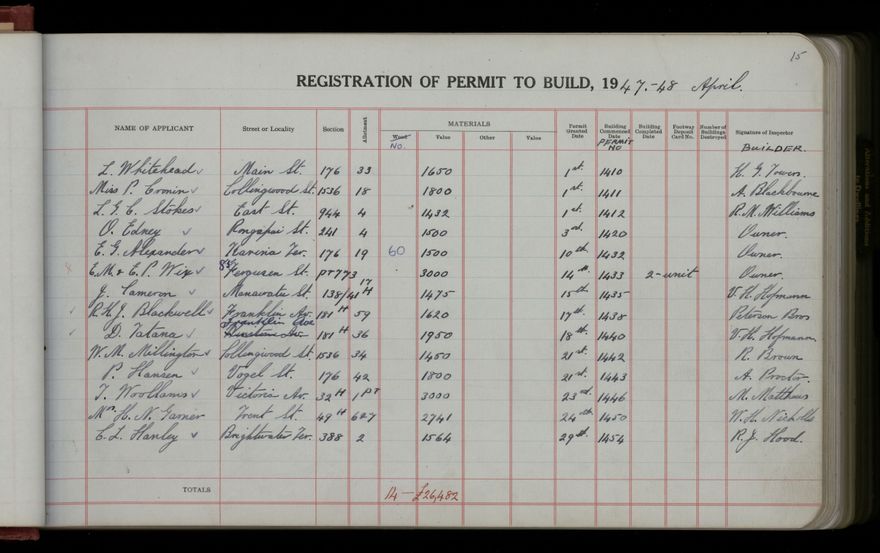 15
REGISTRATION OF PERMIT TO BUILD, 1947-48 April.
NAME OF APPLICANT Street or Locality Section Allotment MATERIALS Permit Granted Date Building Commenced Date Building Completed Date Footway Deposit Card No. Number of Buildings Destroyed Signature of Inspector
NO. Value Other Value PERMIT NO BUILDER
L. Whitehead Main St. 176 33 1650 1st. 1410 H. G. Towers.
Miss P. Cronin Collingwood St. 1536 18 1800 1st. 1411 A. Blackbourne
L. G. C. Stokes East St. 944 4 1432 1st. 1412 R. M. Williams
O. Edney Rongopai St. 241 4 1500 3rd. 1420 Owner.
E. G. Alexander Karina Ter. 176 19 60 1500 10th. 1432 Owner.
E. M. & E. P. Wix Ferguson St. PT 773 3000 14th. 1433 2-unit Owner.
J. Cameron Manawatu St. 138/41H 17 1475 15th. 1435 V. H. Hofmann
R. H. J. Blackwell Franklin Av. 181H 59 1620 17th. 1438 Peterson Bros
D. Tatana Franklin Ave 181H 36 1950 18th. 1440 V. H. Hofmann
W. M. Millington Collingwood St. 1536 34 1450 21st. 1442 R. Brown
P. Hansen Vogel St. 176 42 1800 21st. 1443 A. Proctor.
T. Woolhams Victoria Av. 32H 1PT 3000 23rd. 1446 M. Matthews
Mrs H. N. Garner Trent St. 49H 627 2741 24th. 1450 W. H. Nicholls
C. L. Hanley Brightwater Ter. 388 2 1564 29th. 1454 R. J. Hood.
TOTALS 14 — £26,482
Alterations and Additions
to Dwellings